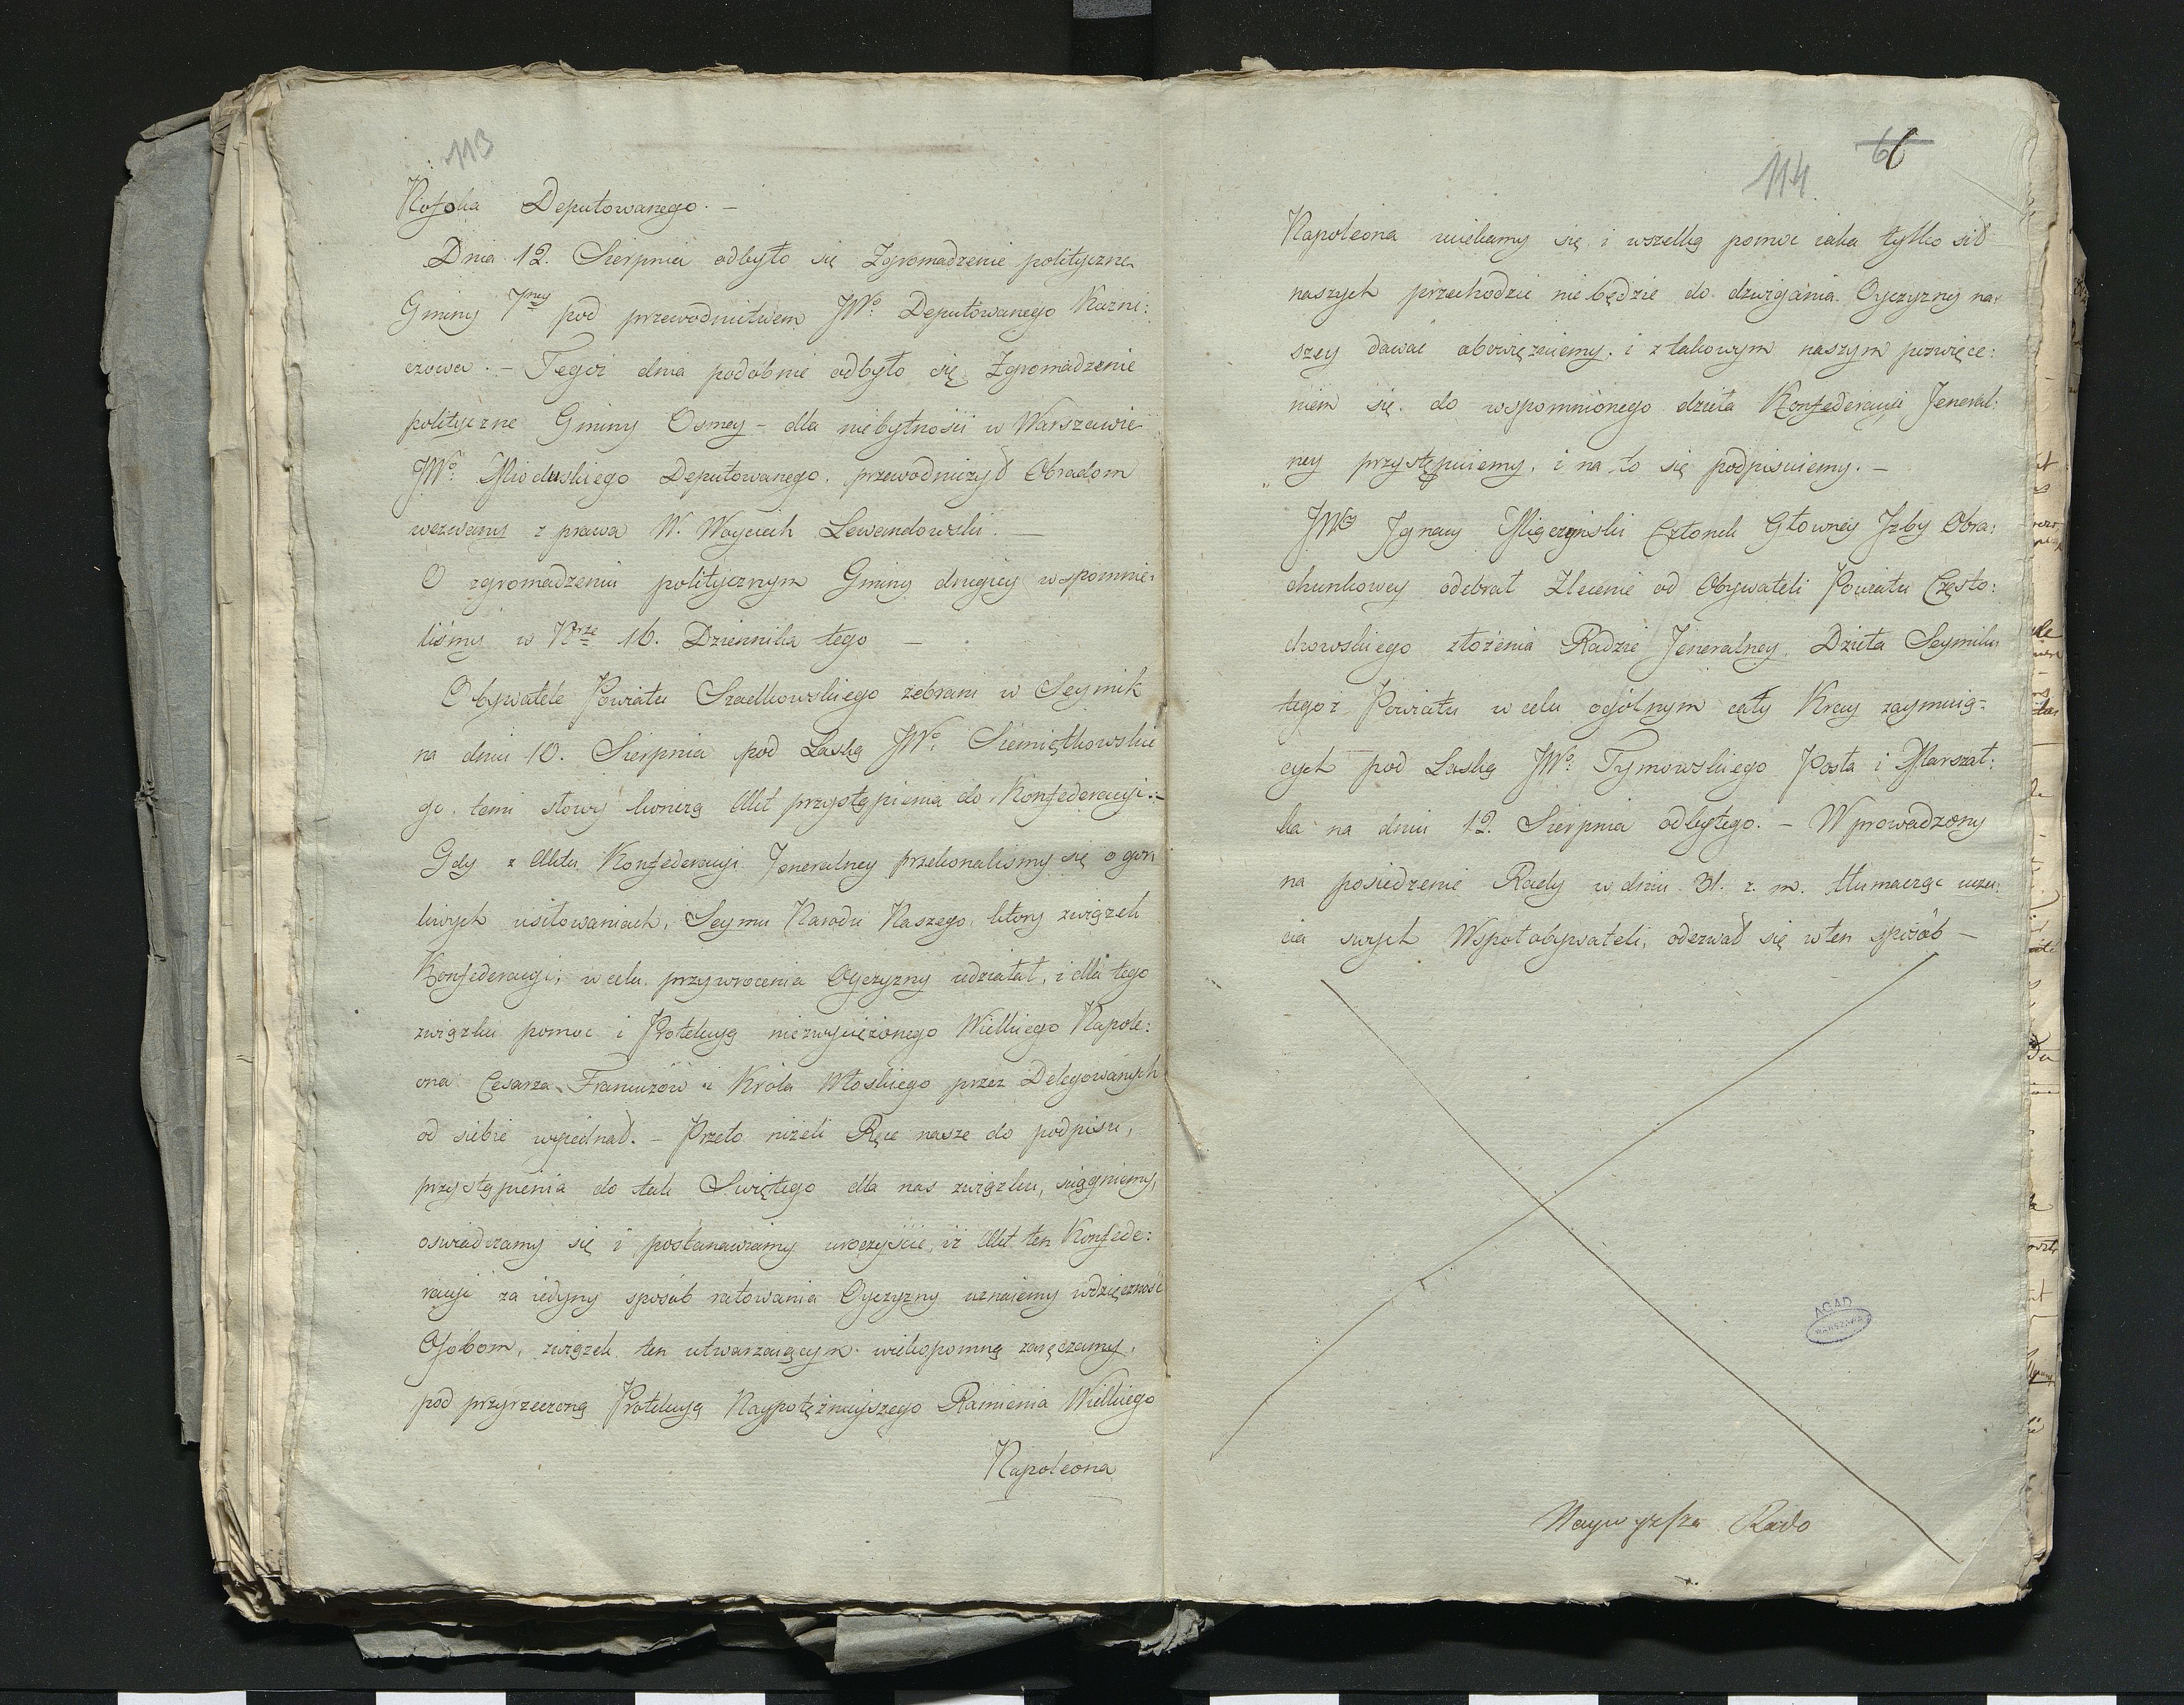 113
Deputowanego. —
Dnia 12. Sierpnia odbyło się Zgromadzenie polityczne
Gminy 7mey pod przewodnictwem JWo. Deputowanego Kuzni:
czowa. — Tegoż dnia podobnie odbyło się Zgromadzenie
polityczne Gminy Osmey — dla niebytności w Warszawie
JWo. Mioduskiego Deputowanego. przewodniczył Obradom
wezwany z prawa W. Woyciech Lewandowski. —
O zgromadzeniu politycznym Gminy drugiey wspomnie:
liśmy w Nrze 16. Dziennika tego —
Obywatele Powiatu Szadkowskiego zebrani w Seymik
na dniu 10. Sierpnia pod Laską JWo. Siemiątkowskie
go. temi słowy kończą Akt przystąpienia do Konfederacyi. —
Gdy z Aktu Konfederacyi Jeneralney przekonaliśmy się o gor
liwych usiłowaniach, Seymu Narodu Naszego, ktory związek
Konfederacyi, w celu przywrocenia Oyczyzny udziałał, i dla tego
związku pomoc i Protekcyą niezwyciężonego Wielkiego Napole:
ona Cesarza Francuzów i Króla Włoskiego przez Delegowanych
od siebie wyiednał. — Przeto niżeli Ręce nasze do podpisu,
przystąpienia do tak Swiętego dla nas związku, sciągniemy,
oswiadczamy się i postanawiamy uroczyście, iż Akt ten Konfede:
racyi za iedyny sposób ratowania Oyczyzny uznaiemy wdzięczność
Osobom, związek ten utwarzaiącym wiekopomną zaręczamy,
pod przyrzeczoną Protekcyą Naypotężnieyszego Ramienia Wielkiego
Napoleona
66
114
Napoleona uciekamy się i wszelką pomoc iaka tylko sił
naszych przechodzić niebędzie do dzwigania Oyczyzny na:
szey dawać obowięzuiemy. i z takowym naszym poswięce:
niem się. do wspomnionego dzieła Konfederacyi Jeneral:
ney przystępuiemy, i na to się podpisuiemy. —
JWny Ignacy Miączyński Członek Głowney Izby Obra:
chunkowey odebrał Zlecenie od Obywateli Powiatu Często:
chowskiego złożenia Radzie Jeneralney Dzieła Seymiku
tegoż Powiatu w celu ogólnym cały Kray zaymuią:
cych pod Laską JWo. Tymowskiego Posła i Marszał:
ka na dniu 12. Sierpnia odbytego. — Wprowadzony
na posiedzenie Rady w dniu 31. z. m. tłumacząc uczu:
cia swych Wspołobywateli, odezwał się w ten sposób —
AGAD
WARSZAWA
Naywyzsza Rado